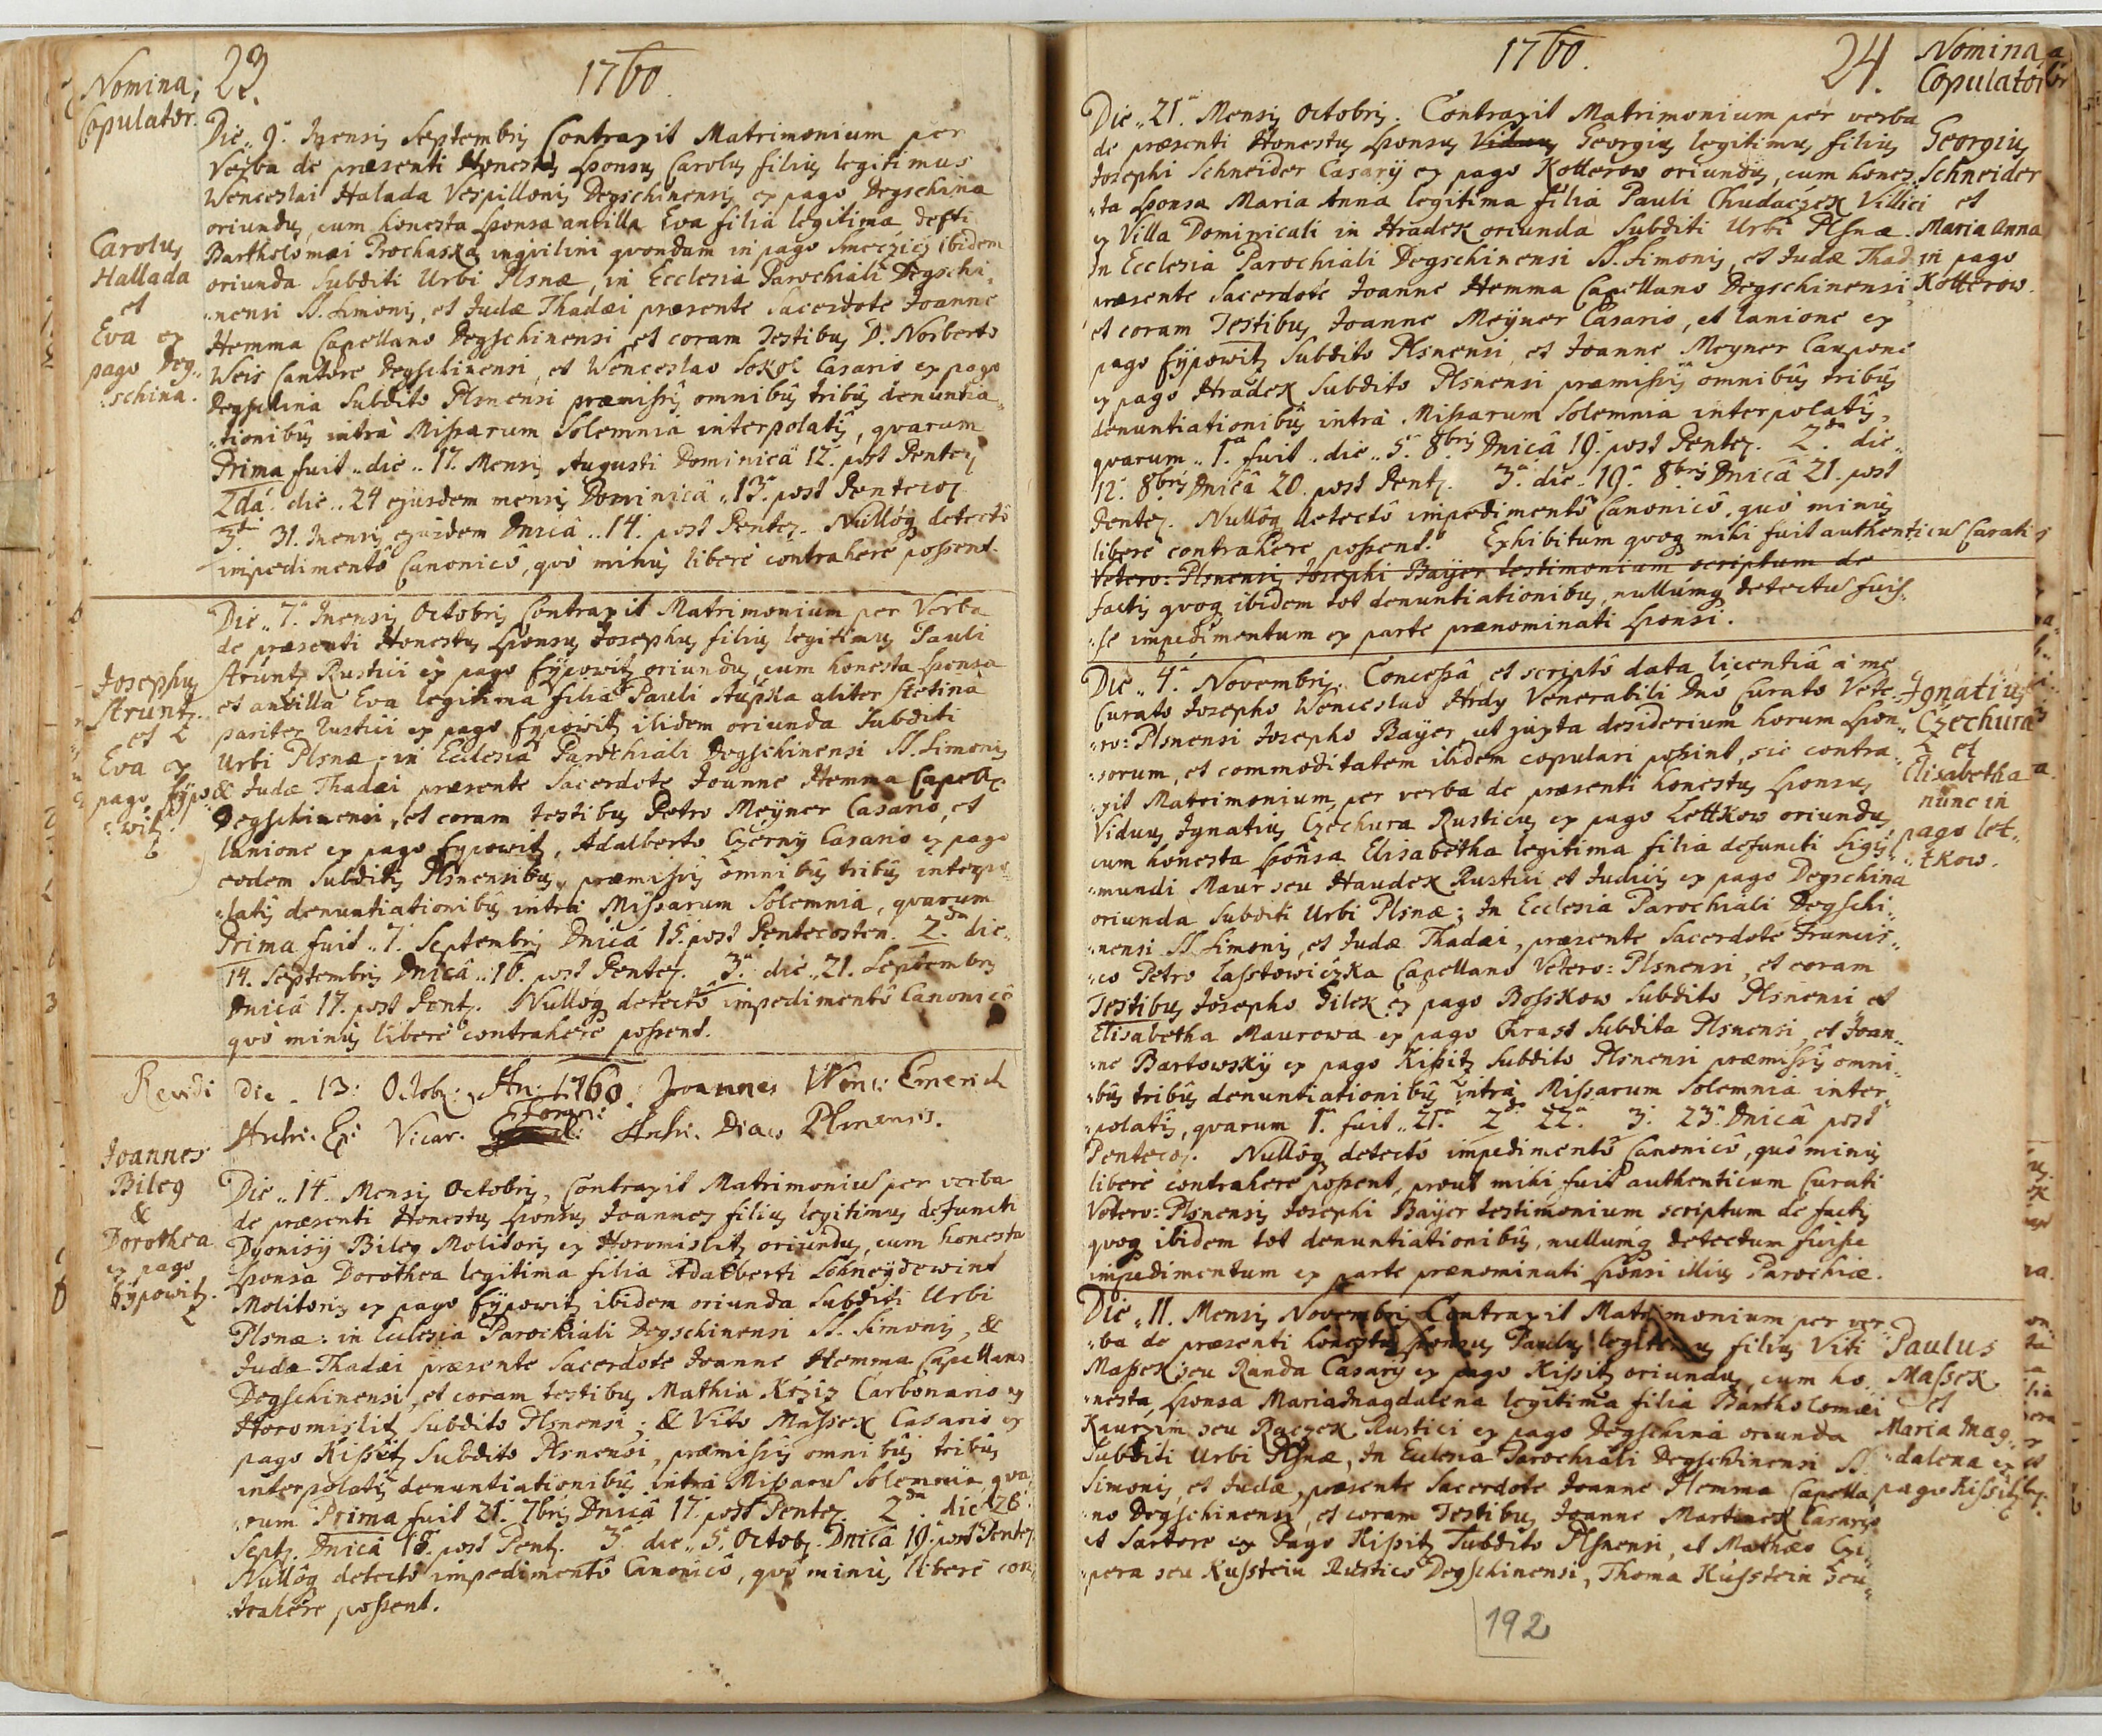 Nomina
Copulator.
23.
1760.
Die 9. Mensis Septembris Contraxit Matrimonium per
Verba de præsenti Honestus Sponsus Carolus filius legitimus
Wenceslai Halada Vespillonis Degschinensis ex pago Degschina
oriundus, cum honesta sponsa ancilla Eva filia legitima, defti
Bartholomæi Prochaska inqvilini qvondam in pago ibidem
oriunda Subditi Urbi Plsnæ, in Ecclesia Parochiali Degschi-
nensi SS. Simonis, et Judæ Thadæi præsente Sacerdote Joanne
Hemma Capellano Degschinensi et coram Testibus D. Norberto
Weis Cantore Degschinensi, et Wenceslao Sokol Casario ex pago
Degschina Subdito Plsnensi præmissis omnibus tribus denuntia-
tionibus intra Missarum Solemnia interpolatis, qvarum
Prima fuit die 17. Mensis Augusti Dominica 12. post Pentec
2da. die 24 ejusdem mensis Dominica 13. post Pentecos
3. 31. Mensis ejusdem Dnica 14. post Pentec. Nulloq detecto
impedimento Canonico, qvo minus libere contrahere possent.
Carolus
Hallada
et
Eva ex
pago Deg-
schina.
Die 7. Mensis Octobris Contraxit Matrimonium per Verba
de præsenti Honestus Sponsus Josephus filius legitimus Pauli
Struntz Rustici ex pago Eypowitz oriundus, cum honesta Sponsa
et ancilla Eva legitima filia Pauli Stupka aliter Stetina
pariter Rustici ex pago Eypowitz ibidem oriunda Subditi
Urbi Plsnæ, in Ecclesia Parochiali Degschinensi SS. Simonis
& Judæ Thadæi præsente Sacerdote Joanne Hemma Capell.
Degschinensi, et coram testibus Petro Meyner Casario, et
lanione ex pago Eypowitz, Adalberto Czerny Casario ex pago
eodem Subditis Plsnensibus, præmissis omnibus tribus interpo-
latis denuntiationibus intra Missarum Solemnia, qvarum
Prima fuit 7. Septembris Dnica 15. post Pentecosten. 2da die
14. Septembris Dnica 16. post Pentec. 3. die 21. Septembris
Dnica 17. post Pent. Nulloq detecto impedimento Canonico
qvo minus libere contrahere possent.
Josephus
Struntz
et
Eva ex
pago Eypo-
witz
Revidi
Die 13: Octob: An: 1760. Joannes Emerich
Archi. Vicar. Foran: Archi. Diac. Plsnensis.
Die 14. Mensis Octobris, Contraxit Matrimoniu per verba
de præsenti Honestus Sponsus Joannes filius legitimus defuncti
Dyonisy Bileg Molitoris ex Horomislitz oriundus, cum honesta
Sponsa Dorothea legitima filia Adalberti Schneydewint
Molitoris ex pago Eypowitz ibidem oriunda Subditi Urbi
Plsnæ: in Ecclesia Parochiali Degschinensi SS. Simonis, &
Judæ Thadæi præsente Sacerdote Joanne Hemma Capellano
Degschinensi, et coram testibus Mathia Carbonario ex
Horomislitz Subdito Plsnensi; & Vito Massek Casario ex
pago Kissitz Subdito Plsnensi, præmissis omnibus tribus
interpolatis denuntiationibus intra Missaru Solemnia, qva-
rum Prima fuit 21. 7bris Dnica 17. post Pentec. 2da. die 28
Sept. Dnica 18. post Pent. 3. die 5. Octob. Dnica 19. post Pentec
Nulloq detecto impedimento Canonico, qvo minus libere con-
trahere possent.
Joannes
Bileg
&
Dorothea
ex pago
Eypowitz.
1760.
24.
Nomina
Copulator
Die 21. Mensis Octobris. Contraxit Matrimonium per verba
de præsenti Honestus Sponsus Viduus Georgius legitimus filius
Josephi Schneider Casary ex pago Kotterow oriundus, cum hones-
ta Sponsa Maria Anna legitima filia Pauli Chudaczek Villici
ex Villa Dominicali in Hradek oriunda Subditi Urbi Plsnæ.
In Ecclesia Parochiali Degschinensi SS. Simonis, et Judæ Thad.
præsente Sacerdote Joanne Hemma Capellano Degschinensi,
et coram Testibus Joanne Meyner Casario, et lanione ex
pago Eypowitz Subdito Plsnensi, et Joanne Meyner Caupone
ex pago Hradek Subdito Plsnensi præmissis omnibus tribus
denuntiationibus intra Missarum Solemnia interpolatis,
qvarum 1. fuit die 5. 8bris Dnica 19. post Pentec. 2da. die
12. 8bris Dnica 20. post Pent. 3. die 19. 8bris Dnica 21. post
Pentec. Nulloq detecto impedimento Canonico, quo minus
libere contrahere possent. Exhibitum qvoq mihi fuit authenticu Curati
Vetero: Plsnensis Josephi Bayer testimonium scriptum de
factis qvoq ibidem tot denuntiationibus, nullumq detectu fuis-
se impedimentum ex parte prænominati Sponsi.
Georgius
Schneider
et
Maria Anna
in pago
Kotterow.
Die 4. Novembris. Concessa, et scripto data licentia a me
Curato Josepho Wenceslao Hrdy Venerabili Dno Curato Vete-
ro: Plsnensi Josepho Bayer, ut juxta desiderium horum Spon-
sorum, et commoditatem ibidem copulari possint, sic contra-
xit Matrimonium per verba de præsenti honestus Sponsus
Viduus Ignatius Czechura Rusticus ex pago Lettkow oriundus
cum honesta Sponsa Elisabetha legitima filia defuncti Sigis-
mundi Maur seu Haudek Rustici et Judicis ex pago Degschina
oriunda Subditi Urbi Plsnæ; In Ecclesia Parochiali Degschi-
nensi SS. Simonis, et Judæ Thadæi, præsente Sacerdote Francis-
co Petro Lasstowiczka Capellano Vetero: Plsnensi, et coram
Testibus Josepho Silek ex pago Bosskow Subdito Plsnensi et
Elisabetha Maurowa ex pago Chrast Subdita Plsnensi, et Joan-
ne Bartowsky ex pago Kissitz Subdito Plsnensi præmissis omni-
bus tribus denuntiationibus intra Missarum Solemnia inter-
polatis, qvarum 1. fuit 21. 2da 22. 3. 23. Dnica post
Pentecos. Nulloq detecto impedimento Canonico, quo minus
libere contrahere possent, prout mihi fuit authenticum Curati
Vetero: Plsnensis Josephi Bayer testimonium scriptum de factis
qvoq ibidem tot denuntiationibus, nullumq detectum fuisse
impedimentum ex parte prænominati Sponsi illius Parochiæ.
Ignatius
Czechura
et
Elisabetha
nunc in
pago Let-
tkow.
Die 11. Mensis Novembris Contraxit Matrimonium per ver-
ba de præsenti honestus Sponsus Paulus legitimus filius Viti
Massek seu Randa Casary ex pago Kissitz oriundus, cum ho-
nesta Sponsa Maria Magdalena legitima filia Bartholomæi
Kaurzim seu Raczek Rustici ex pago Degschina oriunda
Subditi Urbi Plsnæ, In Ecclesia Parochiali Degschinensi SS.
Simonis, et Judæ, præsente Sacerdote Joanne Hemma Capella-
no Degschinensi, et coram Testibus Joanne Martinek Casario
et Sartore ex Pago Kissitz Subdito Plsnensi, et Mathæo Czi-
pera seu Kusstein Rustico Degschinensi, Thoma Kusstein seu
Paulus
Massek
et
Maria Mag-
dalena ex
pago Kissitz
192